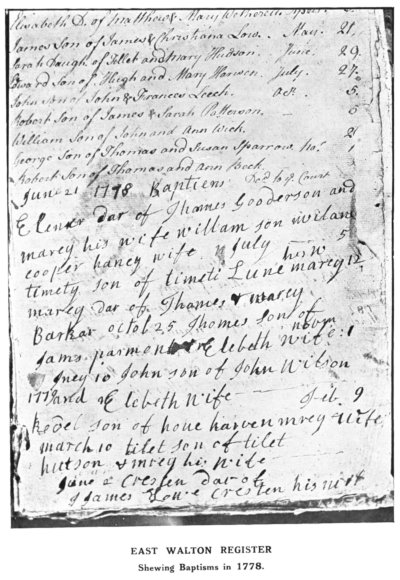 Elizabeth D. of Matthew & Mary
James Son of James & Christiana Low. May. 21.
Sarah Daugh. of Tillet and Mary Hudson. June. 29.
Edward Son of Hugh and Mary Hansen. July. 27.
John Son of John & Frances Leech. Oct. 5.
Robert Son of James & Sarah Patterson. 6
William Son of John and Ann Wick.
George Son of Thomas and Susan Sparrow. No. 21
Robert Son of Thomas and Ann Beck. 1
June 21 1778 Baptiem
Elener dar of Thames Gooderson and
marey his wife willam son
cooper haney wife July 5
timety son of timeti Lune marcy 12
marcy dar of Thames & marcy
Barkar octob 25 Thomes son of
Jams parment Elebeth wife 1
Jney 10 John son of John Witson
and Elebeth Wife Feb. 9
Redel son of houe harven mrey & Wife
march 10 tilet son of tilet
hutson & mrey his wife
June Cresten dar of
James Lowe Cresten his
EAST WALTON REGISTER
Shewing Baptisms in 1778.